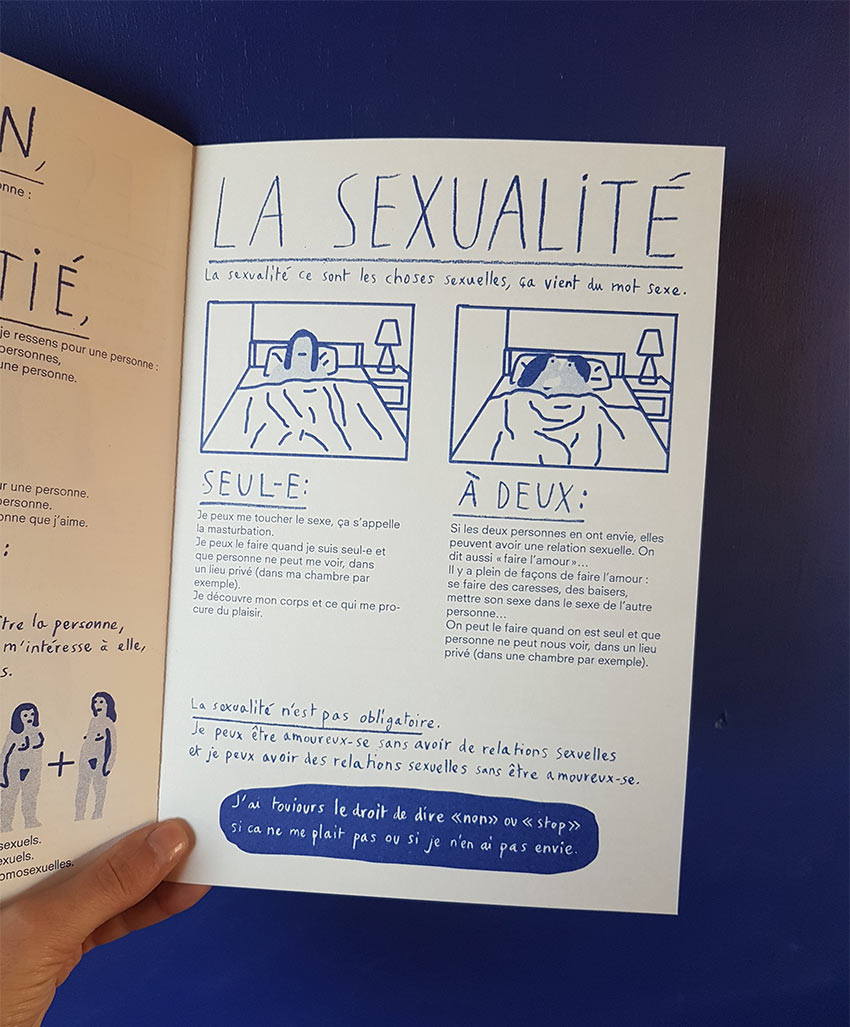 N,
nne :
TIÉ,
je ressens pour une personne :
personnes,
une personne.
ur une personne.
personne.
onne que j'aime.
:
tre la personne,
m'intéresse à elle,
s.
+
sexuels.
exuels.
omosexuelles.
LA SEXUALITÉ
La sexualité ce sont les choses sexuelles, ça vient du mot sexe.
SEUL-E:
Je peux me toucher le sexe, ça s'appelle
la masturbation.
Je peux le faire quand je suis seul-e et
que personne ne peut me voir, dans
un lieu privé (dans ma chambre par
exemple).
Je découvre mon corps et ce qui me pro-
cure du plaisir.
À DEUX:
Si les deux personnes en ont envie, elles
peuvent avoir une relation sexuelle. On
dit aussi « faire l'amour »...
Il y a plein de façons de faire l'amour :
se faire des caresses, des baisers,
mettre son sexe dans le sexe de l'autre
personne...
On peut le faire quand on est seul et que
personne ne peut nous voir, dans un lieu
privé (dans une chambre par exemple).
La sexualité n'est pas obligatoire.
Je peux être amoureux-se sans avoir de relations sexuelles
et je peux avoir des relations sexuelles sans être amoureux-se.
J'ai toujours le droit de dire «non» ou «stop»
si ca ne me plait pas ou si je n'en ai pas envie.